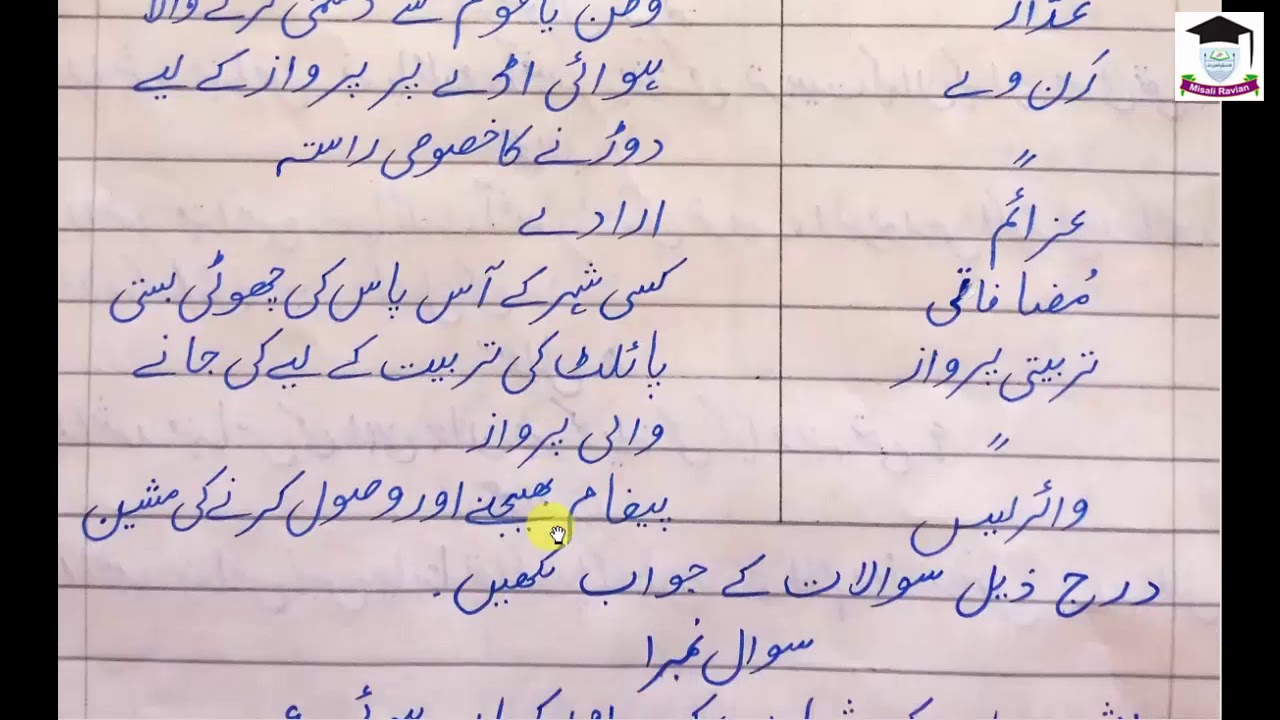 غدّار وطن یا قوم سے دشمنی کرنے والا
رَن وے ہوائی اڈے پر پرواز کے لیے
〃 دوڑنے کا خصوصی راستہ
عزائم ارادے
مُضافاتی کسی شہر کے آس پاس کی چھوٹی بستی
تربیتی پرواز پائلٹ کی تربیت کے لیے کی جانے
〃 والی پرواز
وائرلیس پیغام بھیجنے اور وصول کرنے کی مشین
درج ذیل سوالات کے جواب لکھیں۔
سوال نمبر ۱
Misali Ravian